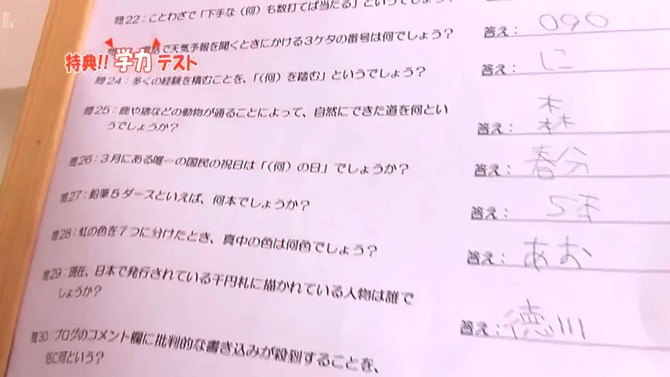 問22：ことわざで「下手な（何）も数打てば当たる」というでしょう
答え：
特典!! 学力テスト
で天気予報を聞くときにかける3ケタの番号は何でしょう？
答え：090
問24：多くの経験を積むことを、「（何）を踏む」というでしょう？
答え：に
問25：鹿や猪などの動物が通ることによって、自然にできた道を何とい
うでしょうか？
答え：森
問26：3月にある唯一の国民の祝日は「（何）の日」でしょうか？
答え：春分
問27：鉛筆5ダースといえば、何本でしょうか？
答え：5本
問28：虹の色を7つに分けたとき、真中の色は何色でしょう？
答え：あお
問29：現在、日本で発行されている千円札に描かれている人物は誰で
しょうか？
答え：徳川
問30：ブログのコメント欄に批判的な書き込みが殺到することを、
俗に何という？